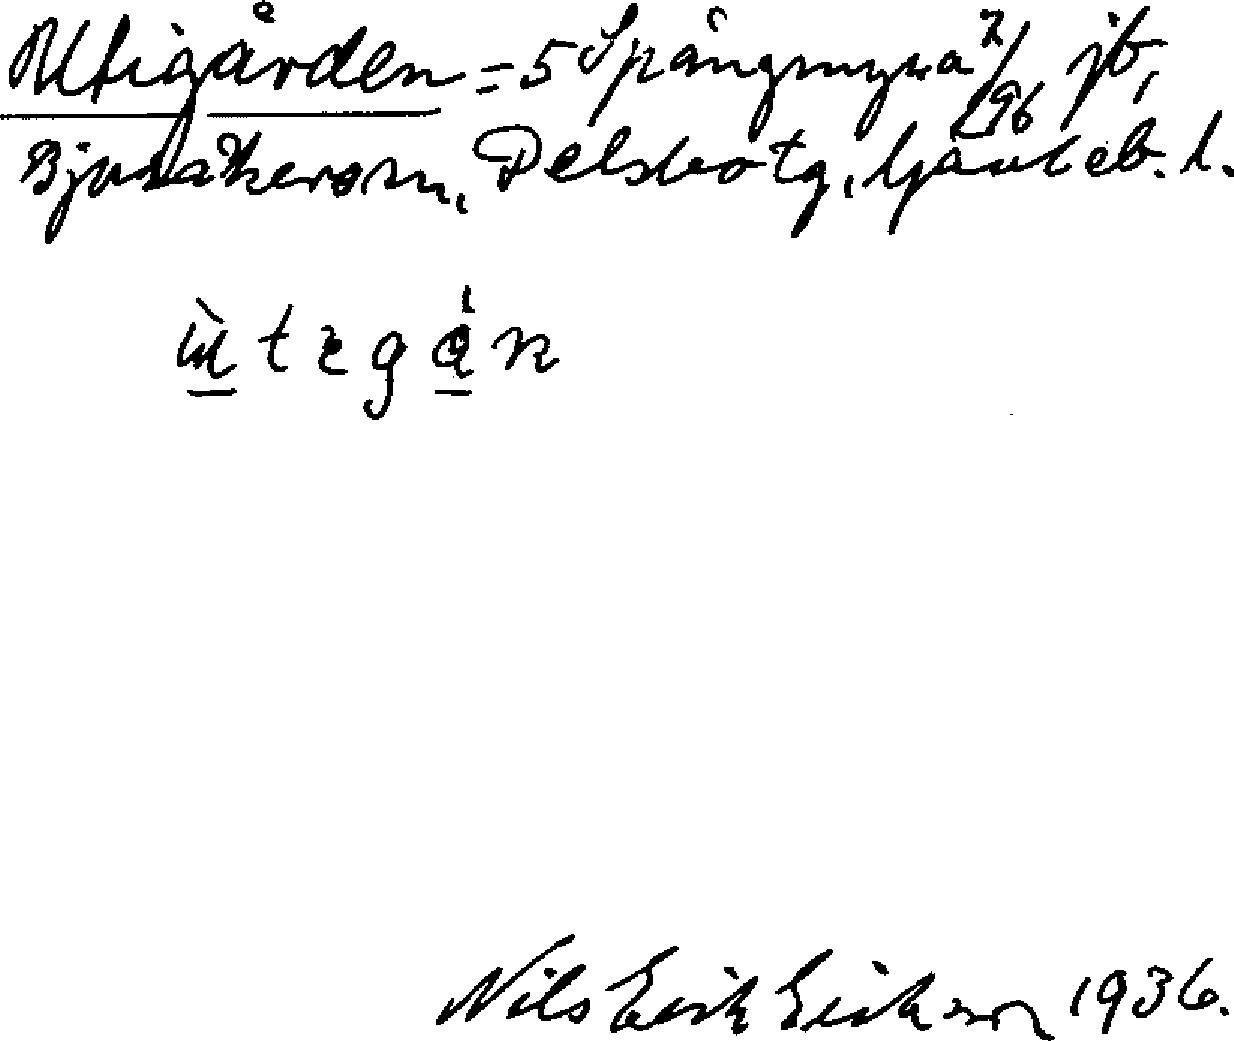 Utigården = 5 Spångmyra 2/296 jb,
Bjuråkers sn, Delsbo tg, Gävleb. l.
ùtegån
Nils Erik Eriksson 1936.